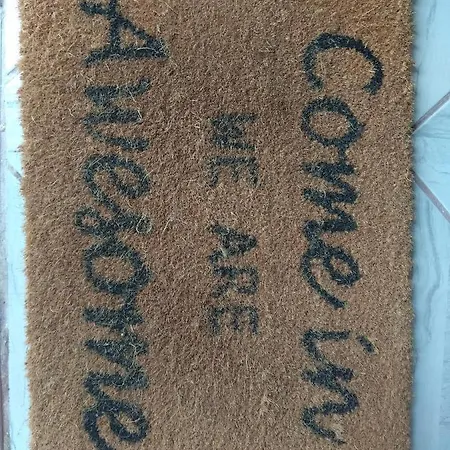 Come in
WE ARE
Awesome